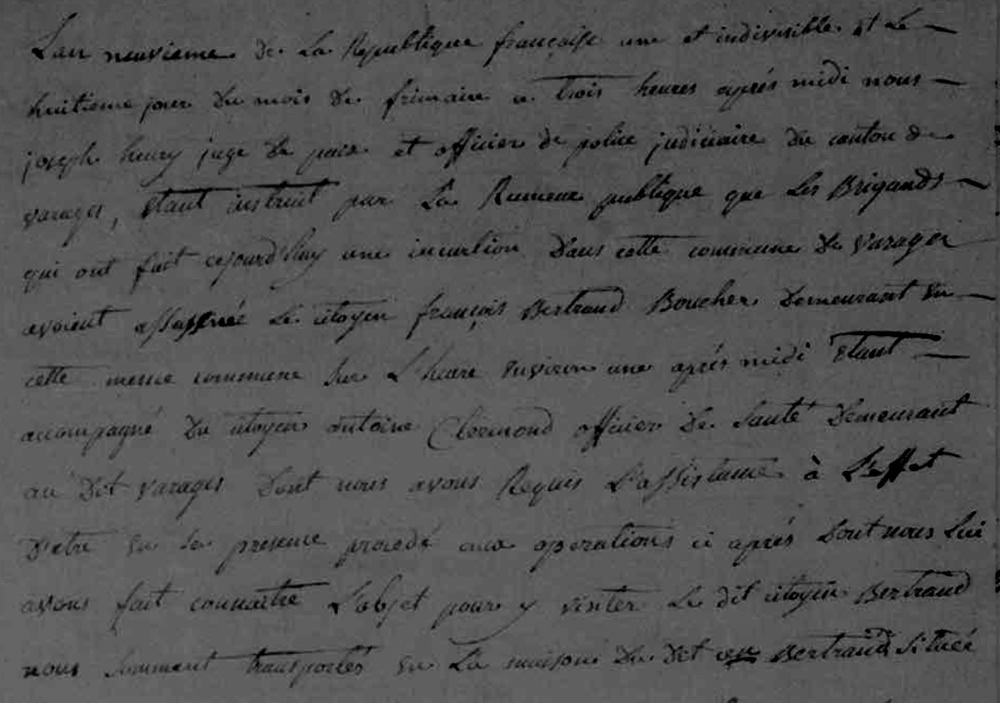 Lan neuvieme de la Republique française une et indivisible et le
huitieme jour du mois de frimaire a trois heures après midi nous
joseph henry juge de paix et officier de police judiciaire du canton de
varages, Etant instruit par la Rumeur publique que les Brigands
qui ont fait cejourd'huy une incurtion dans cette commune de varages
avoient assassiné le citoyen françois Bertrand Boucher demeurant en
cette meme commune sur L'heure environ une après midi Etant
accompagné du citoyen antoine Clermond officier de santé demeurant
au dit varages dont nous avons Requis L'assistance à L'effet
d'etre en sa presence procedé aux operations ci après dont nous lui
avons fait connaitre L'objet pour y visiter le dit citoyen Bertrand
nous somment transportés en la maison du dit Bertrand située